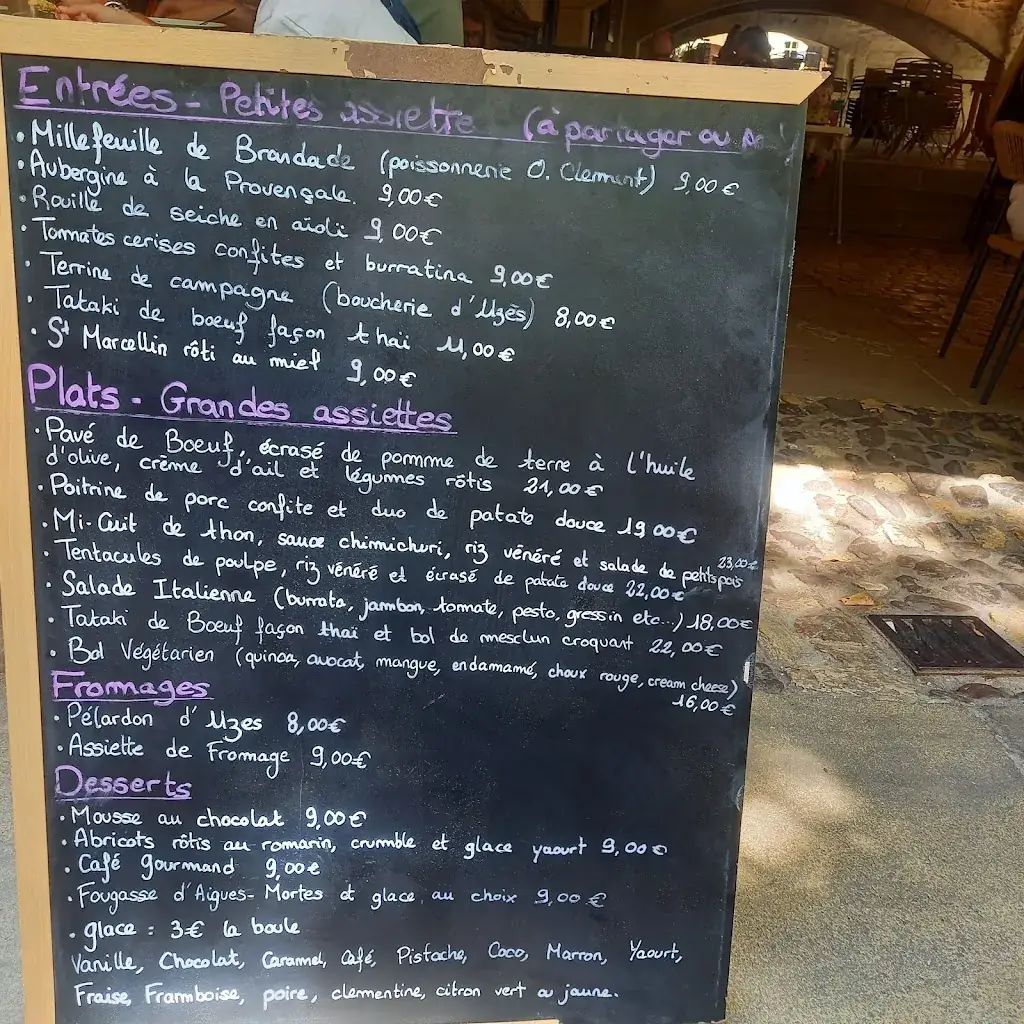 Entrées - Petites assiette (à partager ou
• Millefeuille de Brandade (poissonnerie O. Clement) 9,00€
• Aubergine à la Provençale. 9,00€
• Rouille de seiche en aïoli 9,00€
• Tommates cerises confites et burratina 9,00€
• Terrine de campagne (boucherie d'Uzès) 8,00€
• Tataki de boeuf façon thaï 11,00€
• St Marcellin rôti au miel 9,00€
Plats - Grandes assiettes
• Pavé de Boeuf, écrasé de pomme de terre à l'huile
d'olive, crème d'ail et légumes rôtis 21,00€
• Poitrine de porc confite et duo de patate douce 19,00€
• Mi-Cuit de thon, sauce chimichuri, riz vénéré et salade de petits pois 23,00€
• Tentacules de poulpe, riz vénéré et écrasé de patate douce 22,00€
• Salade Italienne (burrata, jambon, tomate, pesto, gressin etc...) 18,00€
• Tataki de Boeuf façon thaï et bol de mesclun croquant 22,00€
• Bol Végétarien (quinoa, avocat, mangue, endamamé, choux rouge, cream cheese)
16,00€
Fromages
• Pélardon d'Uzes 8,00€
• Assiette de Fromage 9,00€
Desserts
• Mousse au chocolat 9,00€
• Abricots rôtis au romarin, crumble et glace yaourt 9,00€
• Café gourmand 9,00€
• Fougasse d'Aigues-Mortes et glace au choix 9,00€
• glace : 3€ la boule
Vanille, Chocolat, Caramel, Café, Pistache, Coco, Marron, Yaourt,
Fraise, Framboise, poire, clementine, citron vert ou jaune.